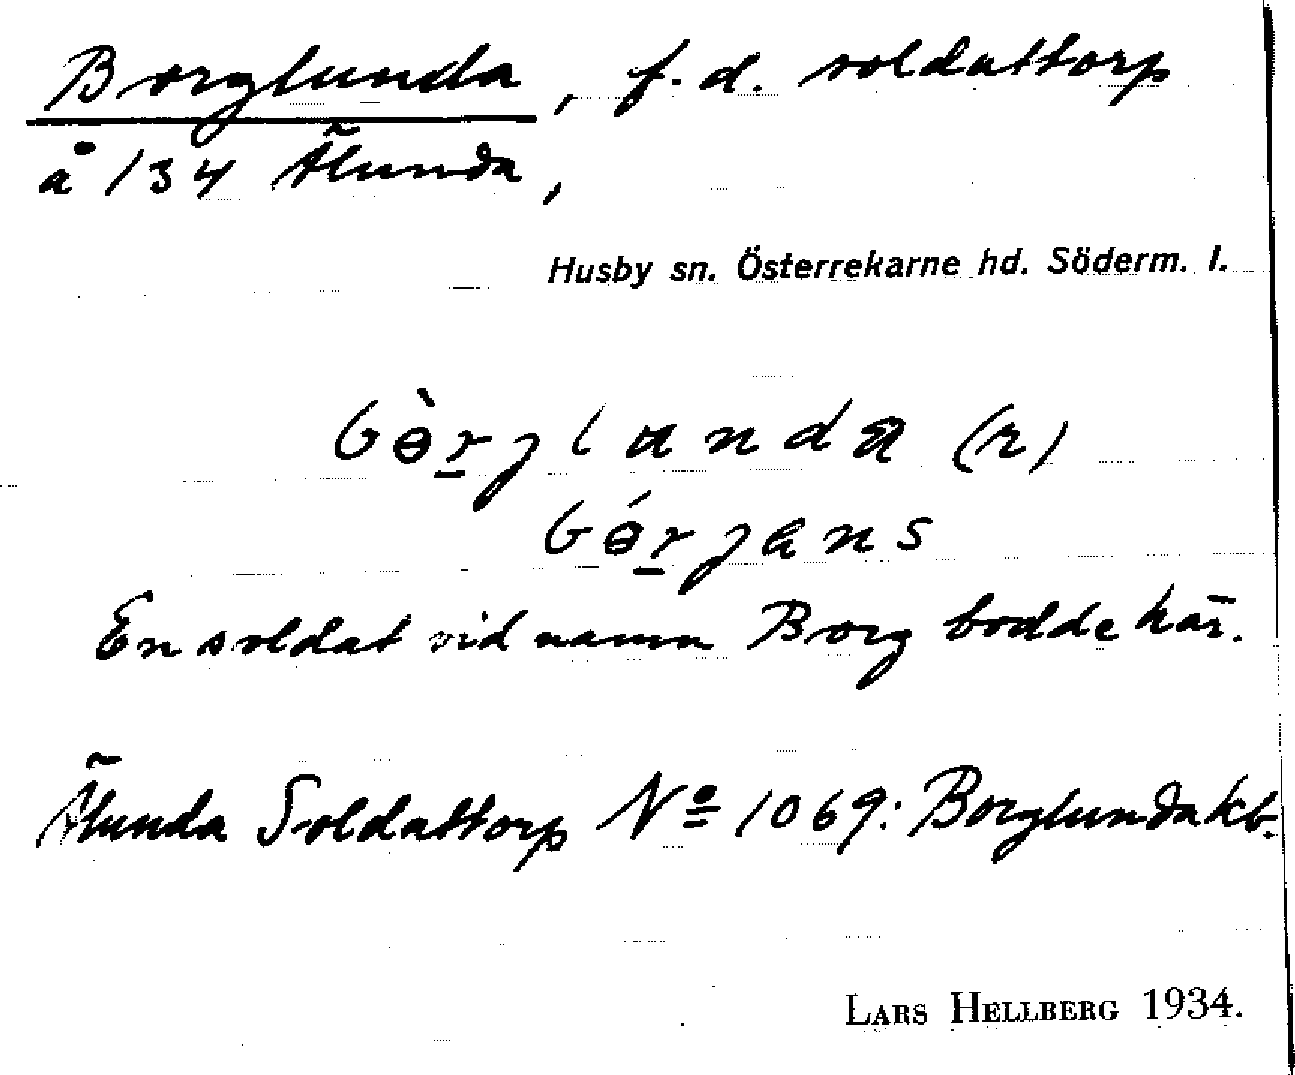 Borglunda, f.d. soldattorp
å 134 Älunda,
Husby sn. Österrekarne hd. Söderm. l.
bɵ̀r̲jlunda (r)
bɵ́r̲jans
En soldat vid namn Borg bodde här.
Älunda Soldattorp Nº 1069: Borglunda kb.
LARS HELLBERG 1934.